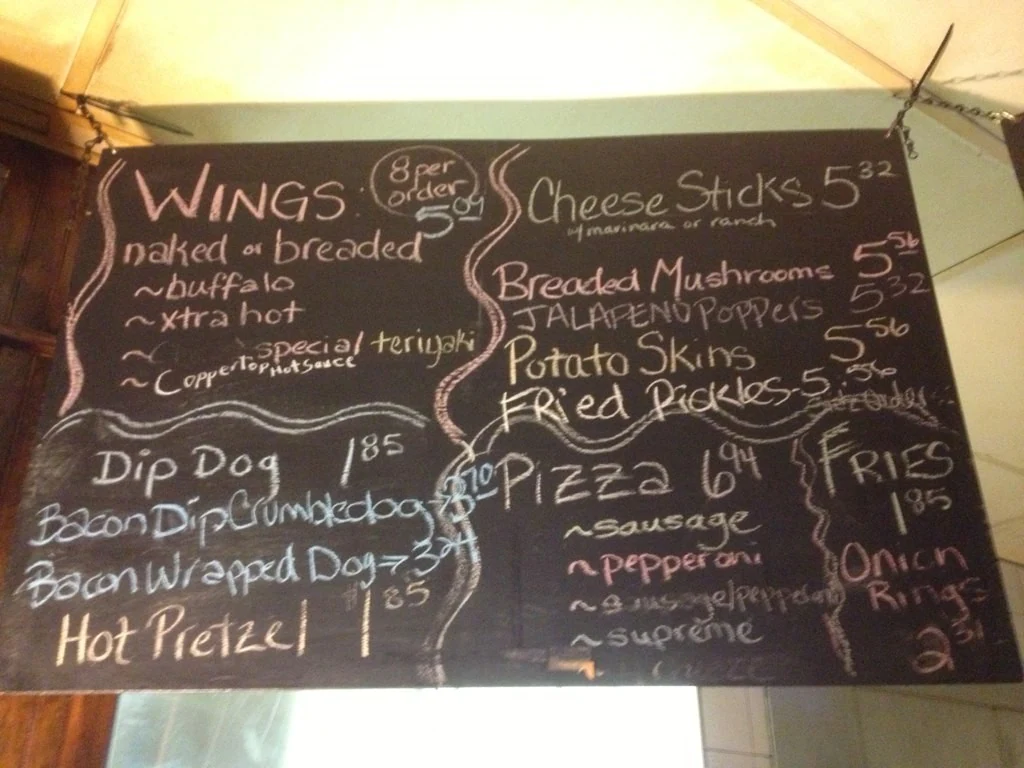 WINGS
8 per
order
5 04
naked or breaded
~buffalo
~xtra hot
~ special teriyaki
~CopperTop Hot Sauce
Cheese Sticks 5 32
w/marinara or ranch
Breaded Mushrooms 5 56
JALAPENO Poppers 5 32
Potato Skins 5 56
FRied Pickles - 5 56
Dip Dog 1 85
Bacon Dip Crumbledog → 3 70
Bacon Wrapped Dog → 3 24
Hot Pretzel 1 85
Pizza 6 94
~sausage
~pepperoni
~sausage/pepperoni
~supreme
FRIES
1 85
Onion
Rings
2 31